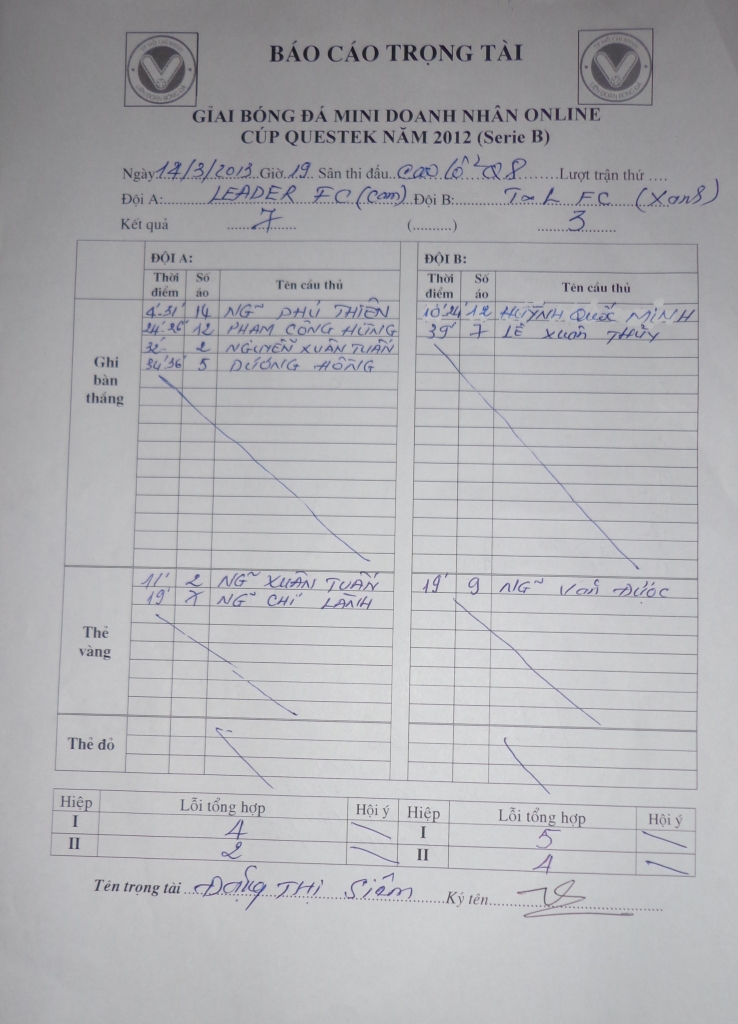 BÁO CÁO TRỌNG TÀI
GIẢI BÓNG ĐÁ MINI DOANH NHÂN ONLINE
CÚP QUESTEK NĂM 2012 (Serie B)
Ngày 17/3/2013 Giờ 19 Sân thi đấu Cao Lỗ Q8 Lượt trận thứ ....
Đội A: LEADER FC (Cam) Đội B: FC (Xanh)
Kết quả 7 (..........) 3
ĐỘI A: ĐỘI B:
Thời điểm Số áo Tên cầu thủ Thời điểm Số áo Tên cầu thủ
Ghi bàn thắng
4' 31' 14 NG~ PHÚ THIÊN 10' 24' 12 HUỲNH QUỐC MINH
24' 26' 12 PHẠM CÔNG HÙNG 39' 7 LÊ XUÂN THỦY
32' 2 NGUYỄN XUÂN TUẤN
34' 36' 5 DƯƠNG HỒNG
Thẻ vàng
11' 2 NG~ XUÂN TUẤN 19' 9 NG~ Văn Được
19' 7 NG~ CHÍ LÀNH
Thẻ đỏ
Hiệp Lỗi tổng hợp Hội ý Hiệp Lỗi tổng hợp Hội ý
I 4 I 5
II 2 II 4
Tên trọng tài Đặng Thị Siêm Ký tên